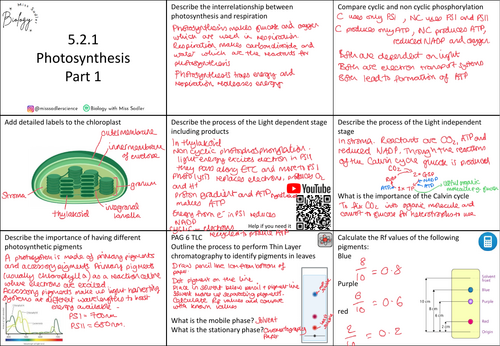 Miss
Sadler
Biology
5.2.1
Photosynthesis
Part 1
@missadlerscience
Biology with Miss Sadler
Describe the interrelationship between
photosynthesis and respiration
Photosynthesis makes glucose and oxygen
which are used in respiration
Respiration makes carbon dioxide and
water which are the reactants for
photosynthesis
Photosynthesis traps energy and
respiration releases energy
Compare cyclic and non cyclic phosphorylation
C uses only PSI, NC uses PSI and PSII
C produces only ATP, NC produces ATP,
reduced NADP and oxygen
Both are dependent on light
Both use electron transport systems
Both lead to formation of ATP
Add detailed labels to the chloroplast
outer membrane
inner membrane
of envelope
granum
intergranal
lamella
thylakoid
Stroma
Describe the process of the Light dependent stage
including products
In thylakoid
Non cyclic photophosphorylation
light energy excites electron in PSII
they pass along ETC and move to PSI
Photolysis replaces electrons, produces O2
and H+
Proton gradient and ATP
makes ATP
Energy from e- in PSI reduces
NADP
YouTube
Help if you need it
Describe the process of the Light independent
stage
In stroma. Reactants are CO2, ATP and
reduced NADP. Through the reactions
of the Calvin cycle glucose is produced
CO2
RuBP
2 x GP
ATP
2 x TP
useful organic
What is the importance of the Calvin cycle?
To fix CO2 into organic molecule and
convert to glucose for heterotrophs use
Describe the importance of having different
photosynthetic pigments
A photosystem is made of primary pigments
and accessory pigments. Primary pigment
(usually chlorophyll a) as a reaction centre
where electrons are excited.
Accessory pigments make up light harvesting
systems at different wavelengths to best
energy available.
PSI = 700nm
PSII = 680nm
PAG 6 TLC
Outline the process to perform Thin Layer
chromatography to identify pigments in leaves
Draw pencil line 1cm from bottom of
paper
Dot pigment on the line
Place in solvent below pencil + pigment line
Solvent moves up separating pigments.
Calculate Rf values and compare
with known values
What is the mobile phase? Solvent
What is the stationary phase? Chromatography
Paper
Calculate the Rf values of the following
pigments:
Blue
8/10 = 0.8
Purple
6/10 = 0.6
red
2/10 = 0.2
Solvent
front
Blue
Purple
Red
Origin
10 cm
8 cm
6 cm
2 cm